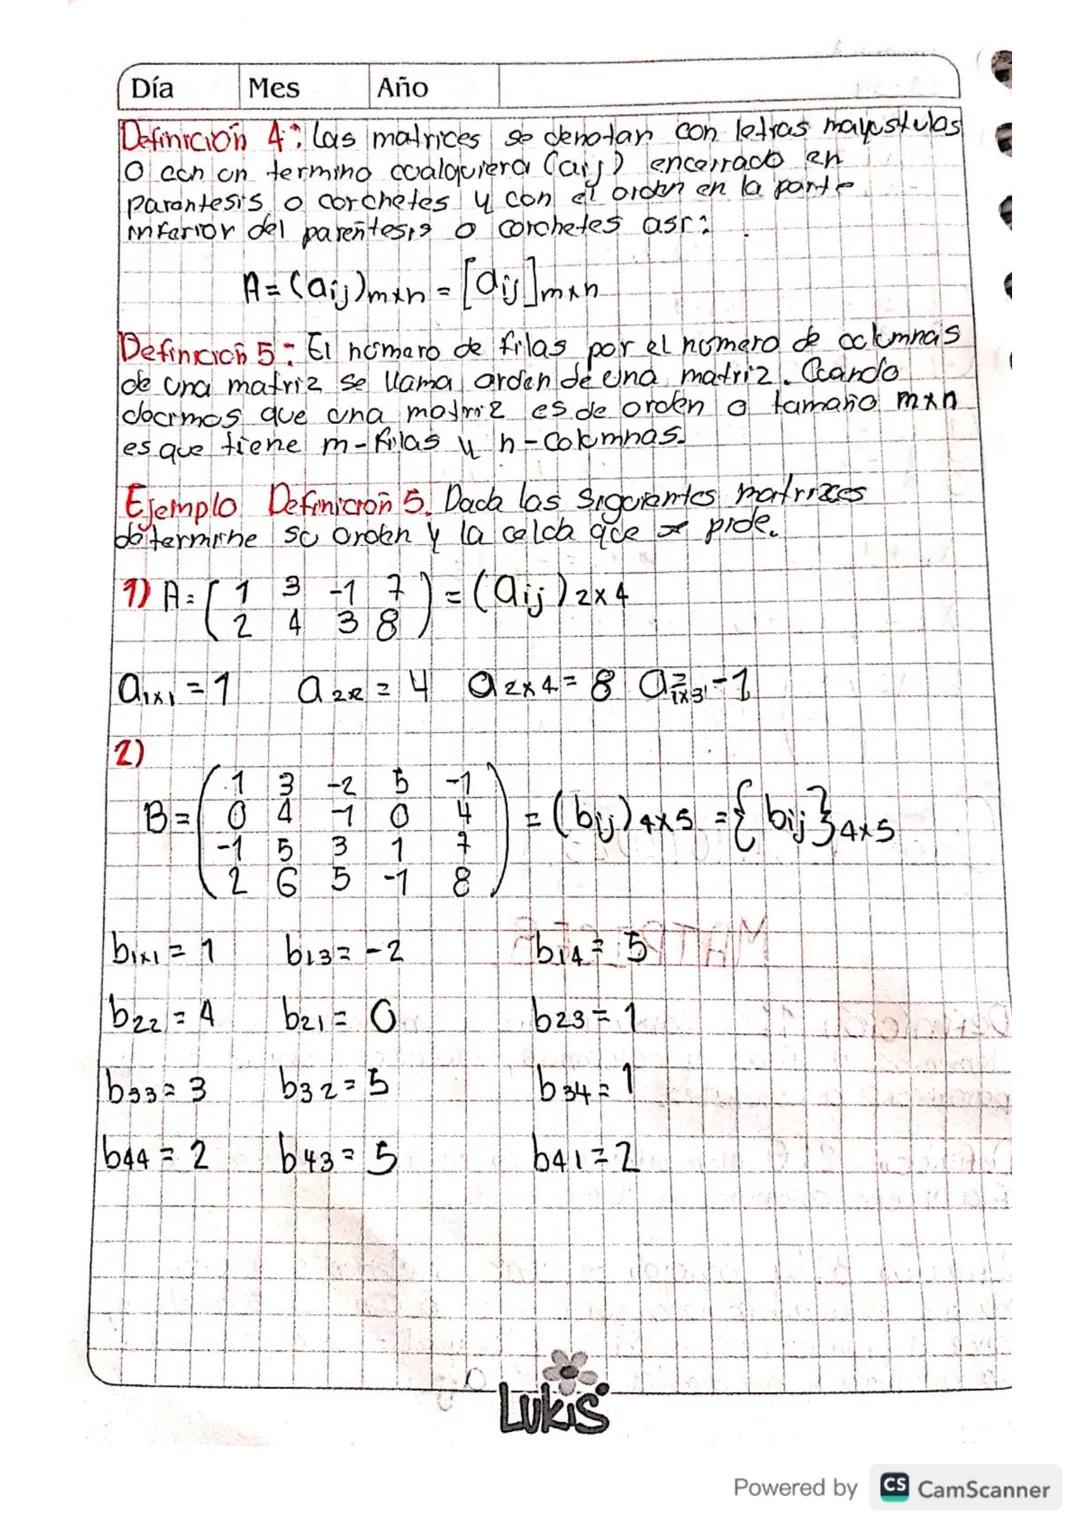 Día Mes Año
Definición 4: Las matrices se denotan con letras mayustulas
O con un termino cualquiera (aij) encerrado en
Parentesis o corchetes y con el orden en la parte
inferior del parentesis o corchetes asi:
A = (aij)mxn = [aij]mxn
Definición 5: El número de filas por el número de columnas
de una matriz se llama orden de una matriz. Cuando
decimos que una matriz es de orden o tamaño mxn
es que tiene m-filas y n-columnas.
Ejemplo Definición 5. Dada las siguientes matrices
determine su orden y la celda que se pide.
1) A = ( 1 3 -1 7 ) = (aij)2x4
2 4 3 8
a1x1 = 1 a22 = 4 a2x4 = 8 a1x3 = -1
2)
1 3 -2 5 -1
B = 0 4 -1 0 4 = (bij)4x5 = {bij}4x5
-1 5 3 1 7
2 6 5 -1 8
b1x1 = 1 b13 = -2 b14 = 5
b22 = 4 b21 = 0 b23 = 1
b33 = 3 b32 = 5 b34 = 1
b44 = 2 b43 = 5 b41 = 2
LUKIS
Powered by CS CamScanner